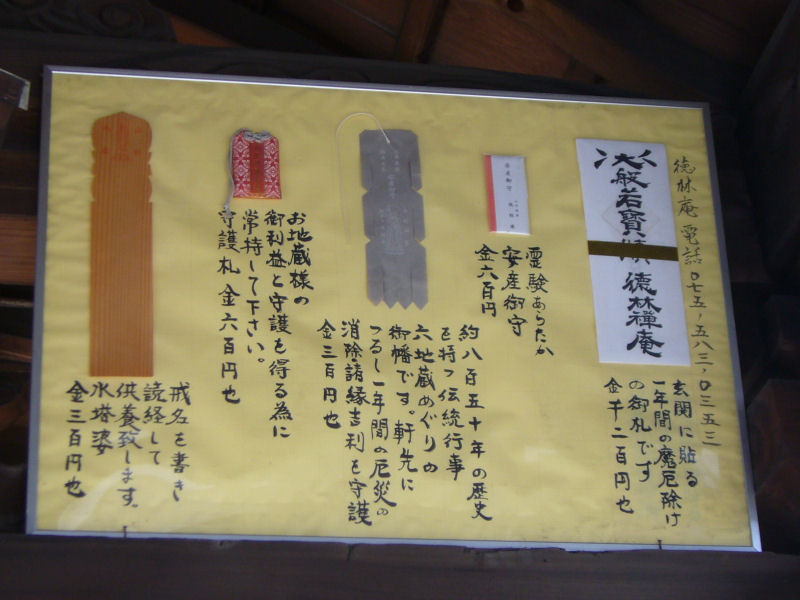 徳林庵 電話〇七五，五八三，〇三五三
大般若寶牘 德林禪庵
玄関に貼る
一年間の魔厄除け
の御札です
金千二百円也
安産御守
霊験あらたか
安産御守
金六百円
約八百五十年の歴史
を持つ伝統行事
六地蔵めぐりの
御幡です。軒先に
つるし一年間の厄災の
消除・諸縁吉利を守護
金三百円也
お地蔵様の
御利益と守護を得る為に
常持して下さい。
守護札 金六百円也
戒名を書き
読経して
供養致します。
水塔婆
金三百円也